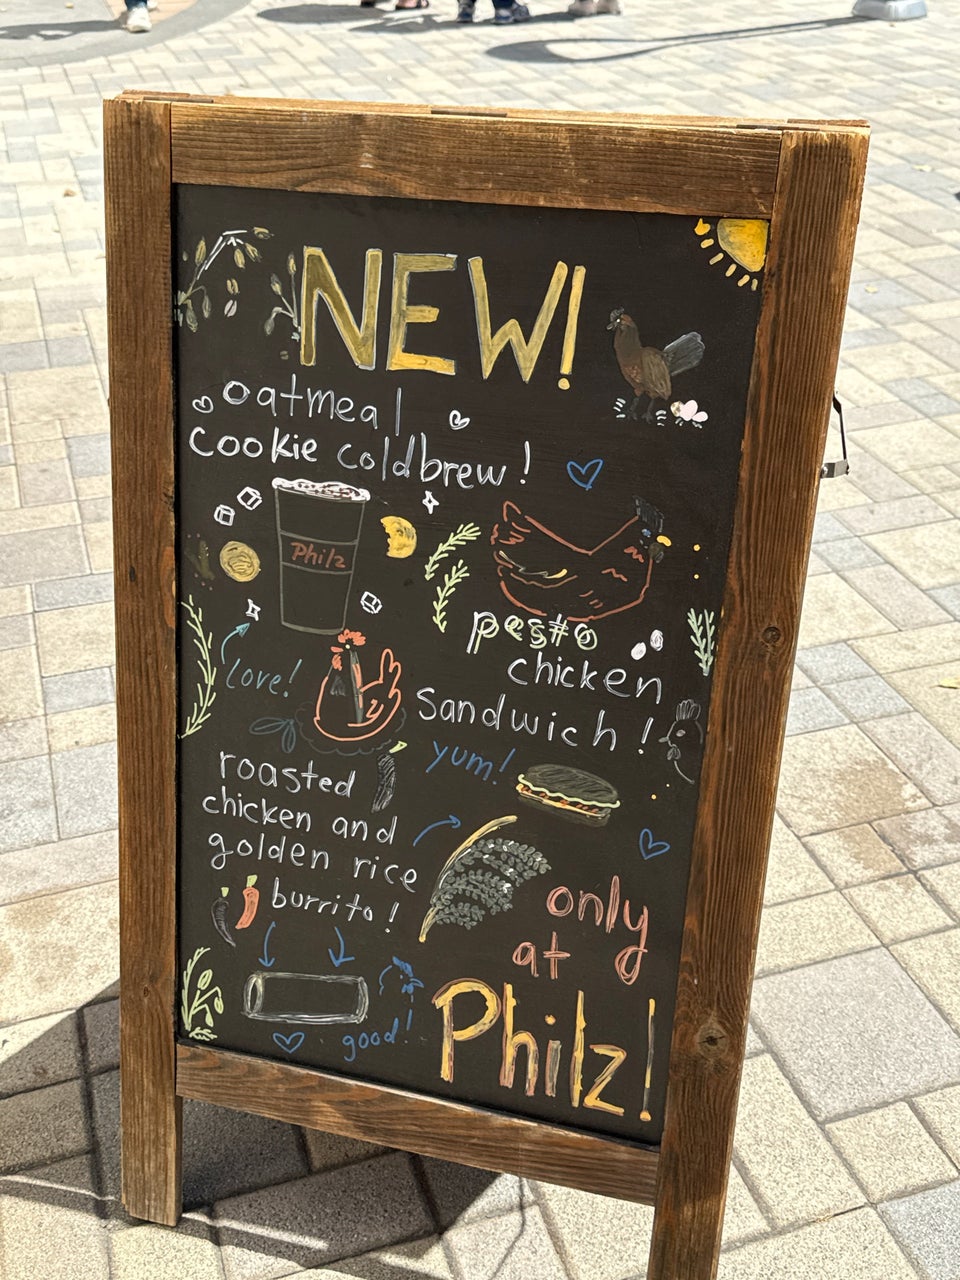 NEW!
oatmeal
cookie coldbrew!
Philz
love!
pesto
chicken
sandwich!
yum!
roasted
chicken and
golden rice
burrito!
good!
only
at
Philz!